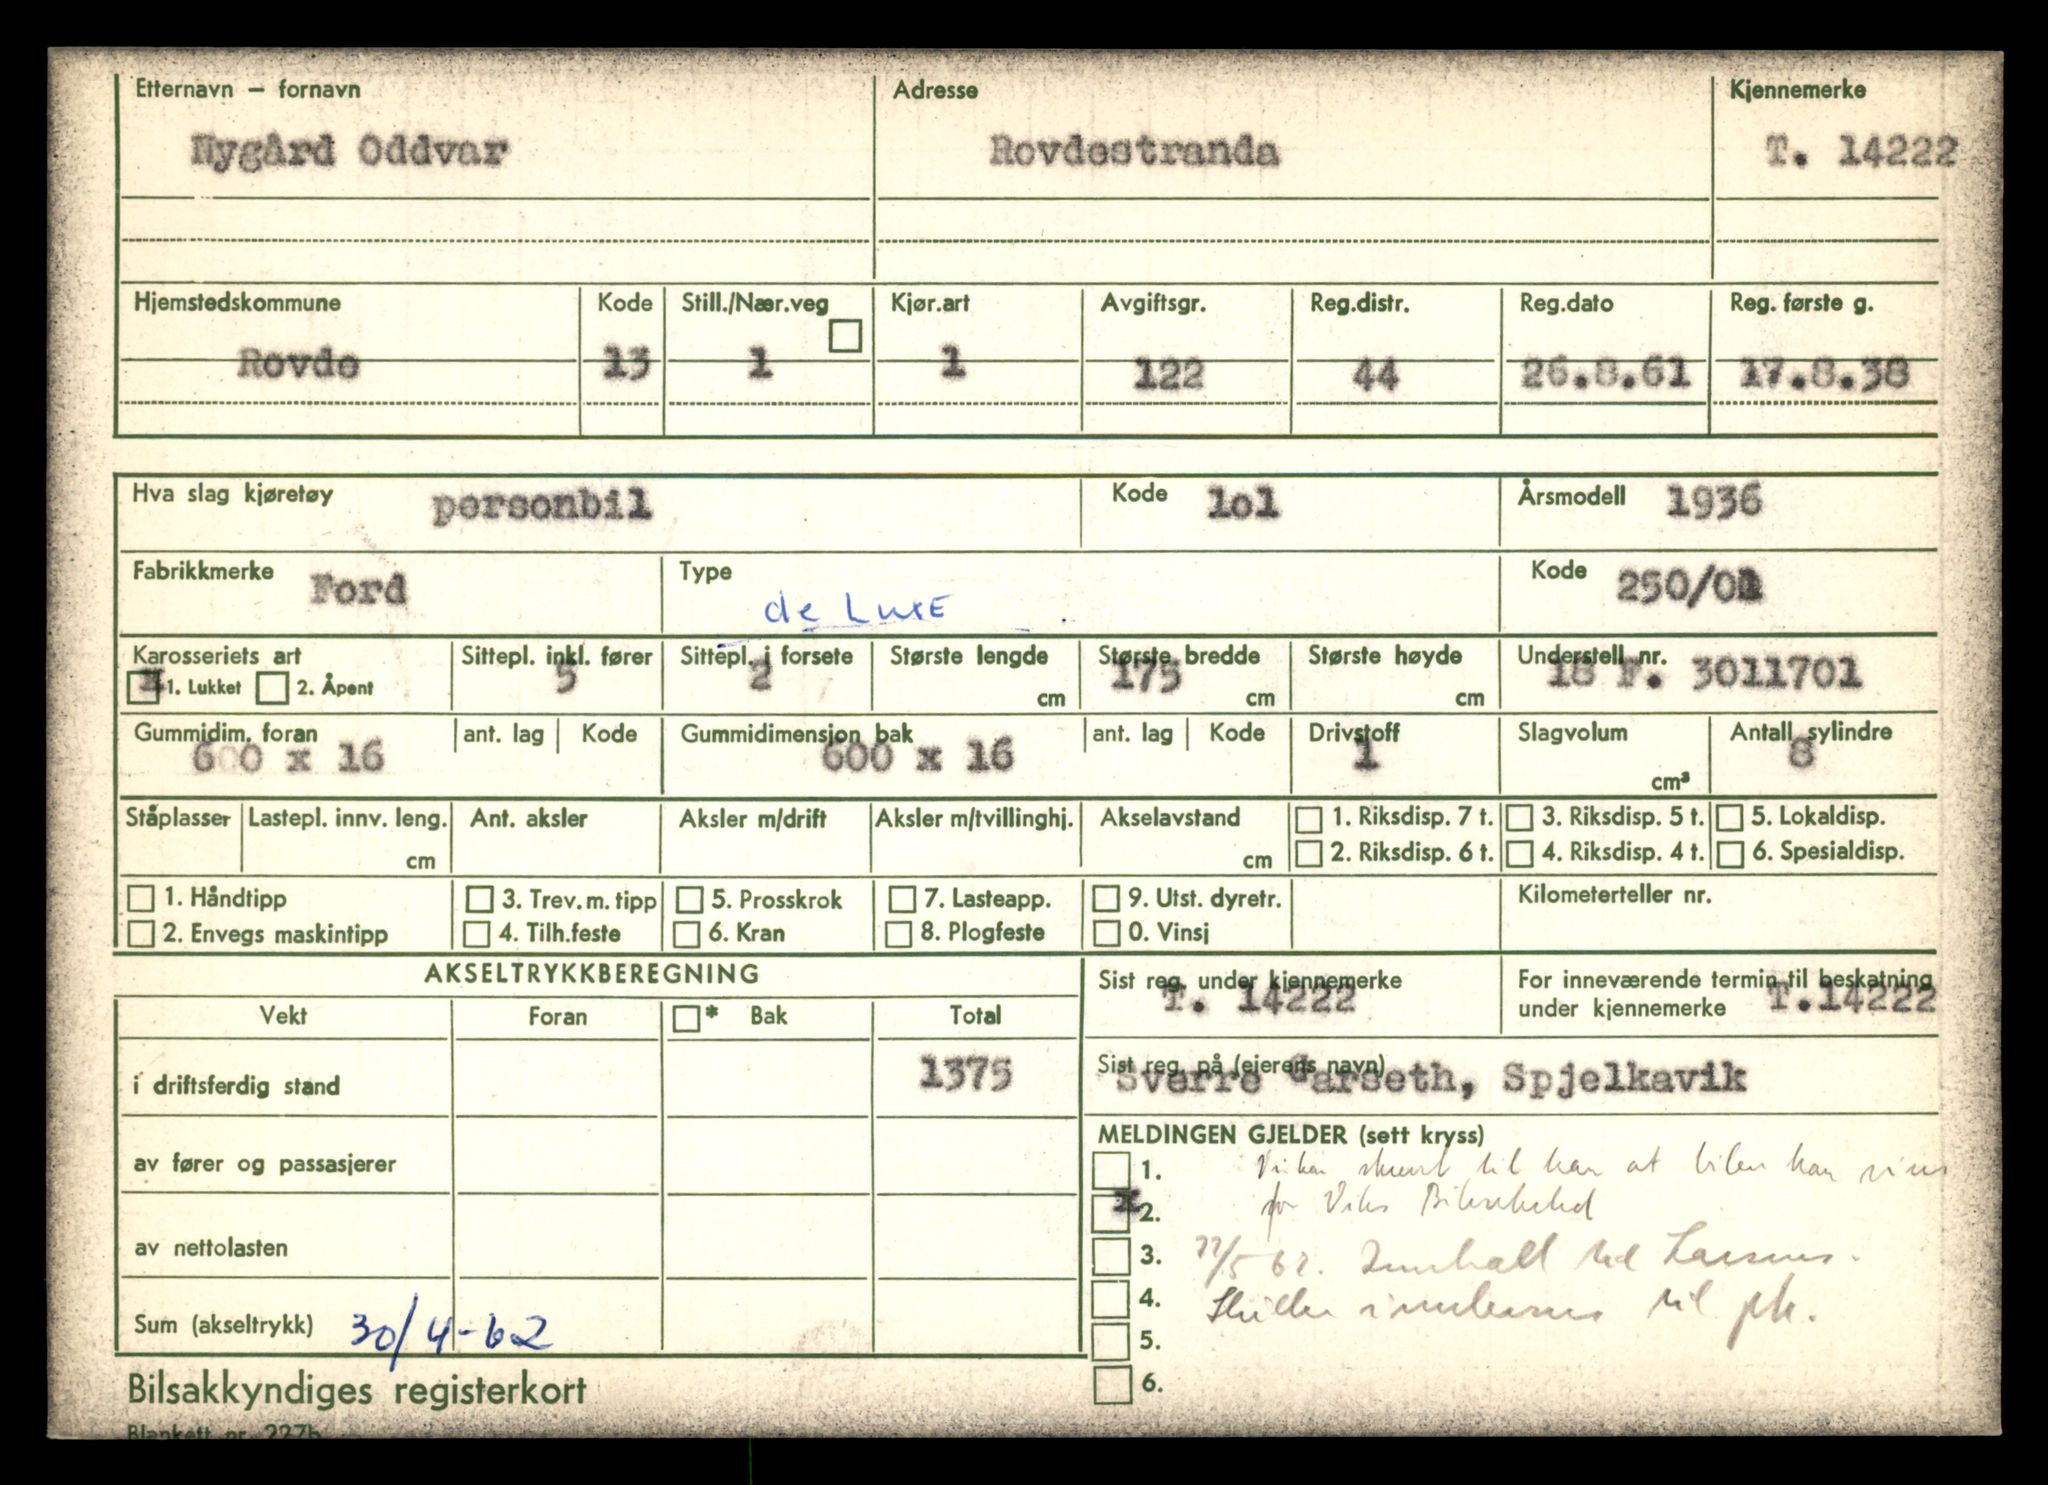 Etternavn – fornavn Adresse Kjennemerke
Nygård Oddvar Rovdestranda T. 14222
Hjemstedskommune Kode Still./Nær.veg Kjør.art Avgiftsgr. Reg.distr. Reg.dato Reg. første g.
Rovde 13 1 1 122 44 26.8.61 17.8.38
Hva slag kjøretøy personbil Kode 1o1 Årsmodell 1936
Fabrikkmerke Ford Type de Luxe Kode 250/01
Karosseriets art Sittepl. inkl. fører Sittepl. i forsete Største lengde Største bredde Største høyde Understell nr.
X 1. Lukket 2. Åpent 5 2 cm 175 cm cm 18 F. 3011701
Gummidim. foran ant. lag Kode Gummidimensjon bak ant. lag Kode Drivstoff Slagvolum Antall sylindre
600 x 16 600 x 16 1 cm³ 8
Ståplasser Lastepl. innv. leng. Ant. aksler Aksler m/drift Aksler m/tvillinghj. Akselavstand 1. Riksdisp. 7 t. 3. Riksdisp. 5 t. 5. Lokaldisp.
cm cm 2. Riksdisp. 6 t. 4. Riksdisp. 4 t. 6. Spesialdisp.
1. Håndtipp 3. Trev. m. tipp 5. Prosskrok 7. Lasteapp. 9. Utst. dyretr. Kilometerteller nr.
2. Envegs maskintipp 4. Tilh.feste 6. Kran 8. Plogfeste 0. Vinsj
AKSELTRYKKBEREGNING Sist reg. under kjennemerke For inneværende termin til beskatning
T. 14222 under kjennemerke T.14222
Vekt Foran * Bak Total
i driftsferdig stand 1375
Sist reg. på (eierens navn)
Sverre Garseth, Spjelkavik
av fører og passasjerer
av nettolasten
Sum (akseltrykk) 30/4-62
MELDINGEN GJELDER (sett kryss)
1. til han at bilen kan
X 2. for Viks
3. 22/5 62.
4. til
5.
6.
Bilsakkyndiges registerkort
Blankett nr. 227b